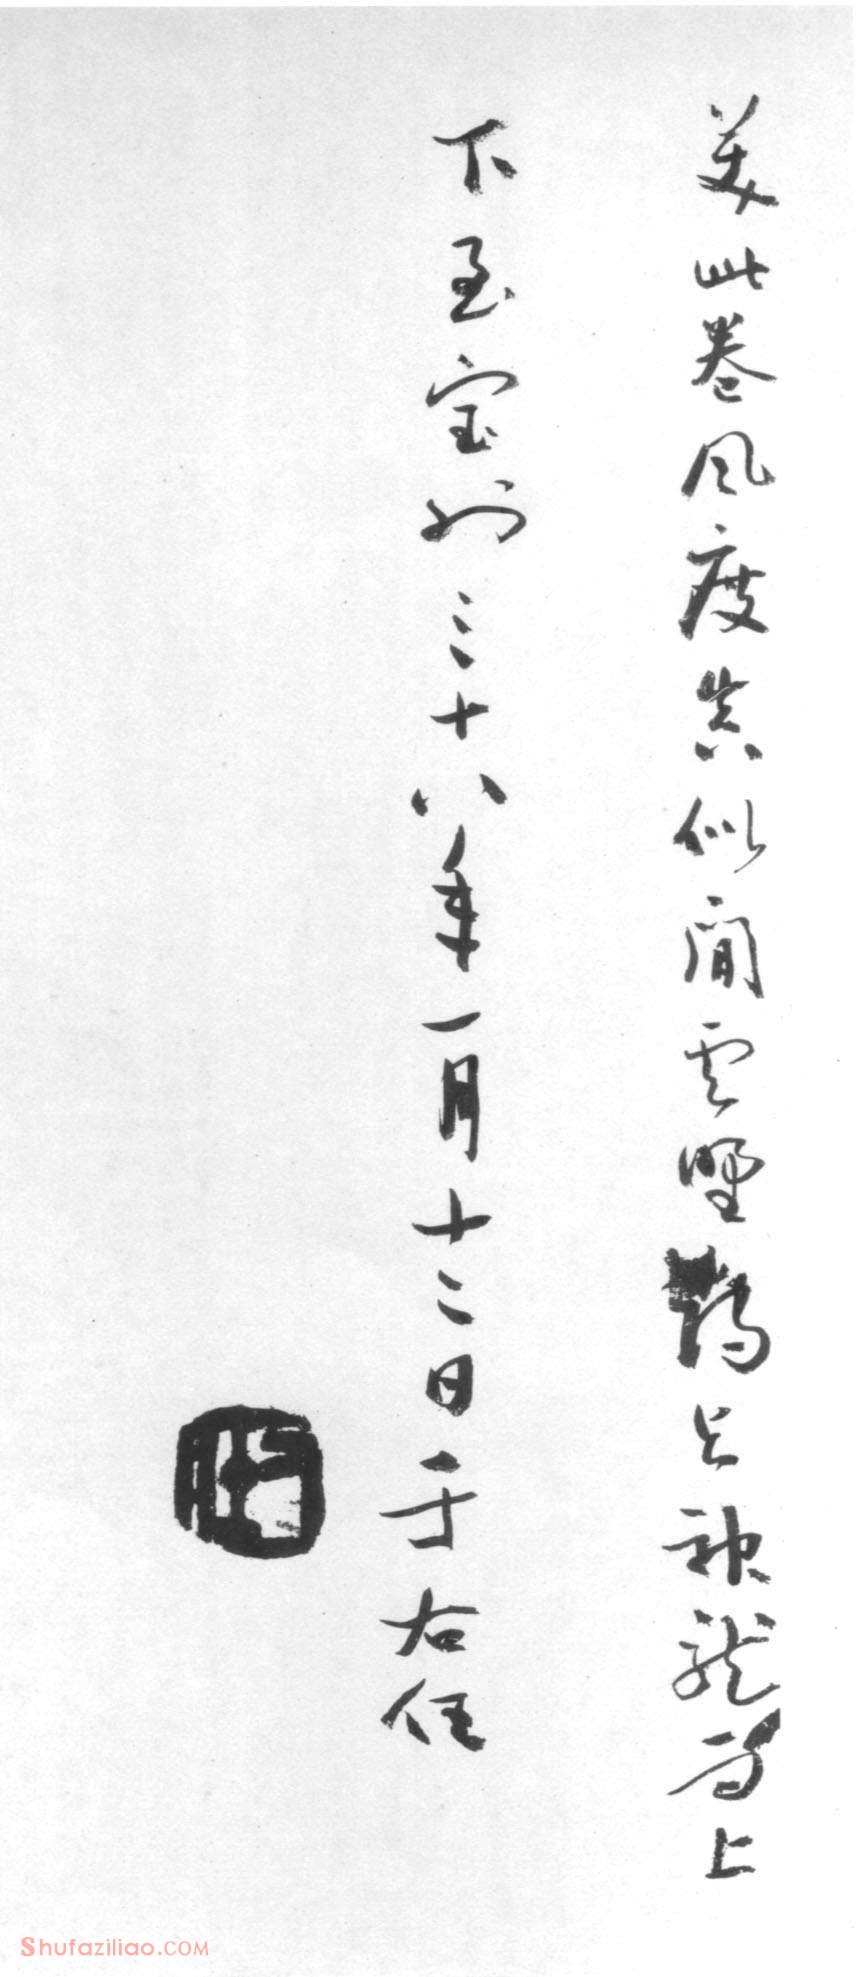 美此卷風度真似閒雲野鶴与神龍上
下至宝三十八年一月十二日于右任
右任
Shufaziliao.COM